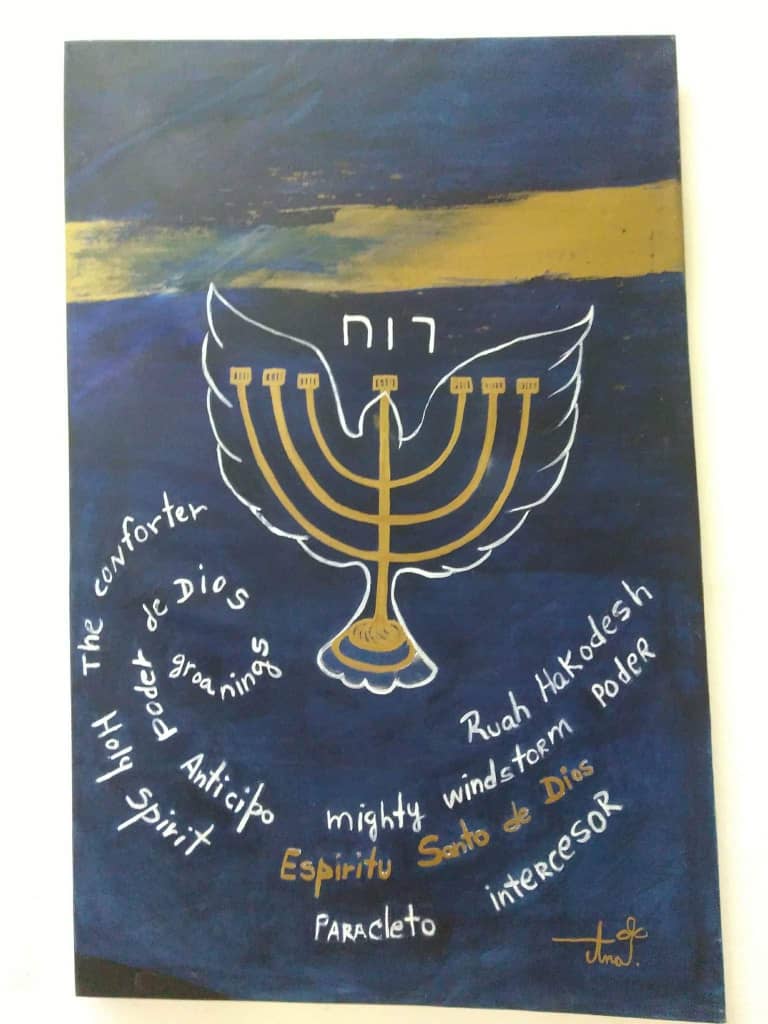 רוח
The conforter
poder de Dios
groanings
Holy Spirit
Anticipo
Ruah Hakodesh
mighty windstorm Poder
Espiritu Santo de Dios
intercesor
PARAcleto
Ana